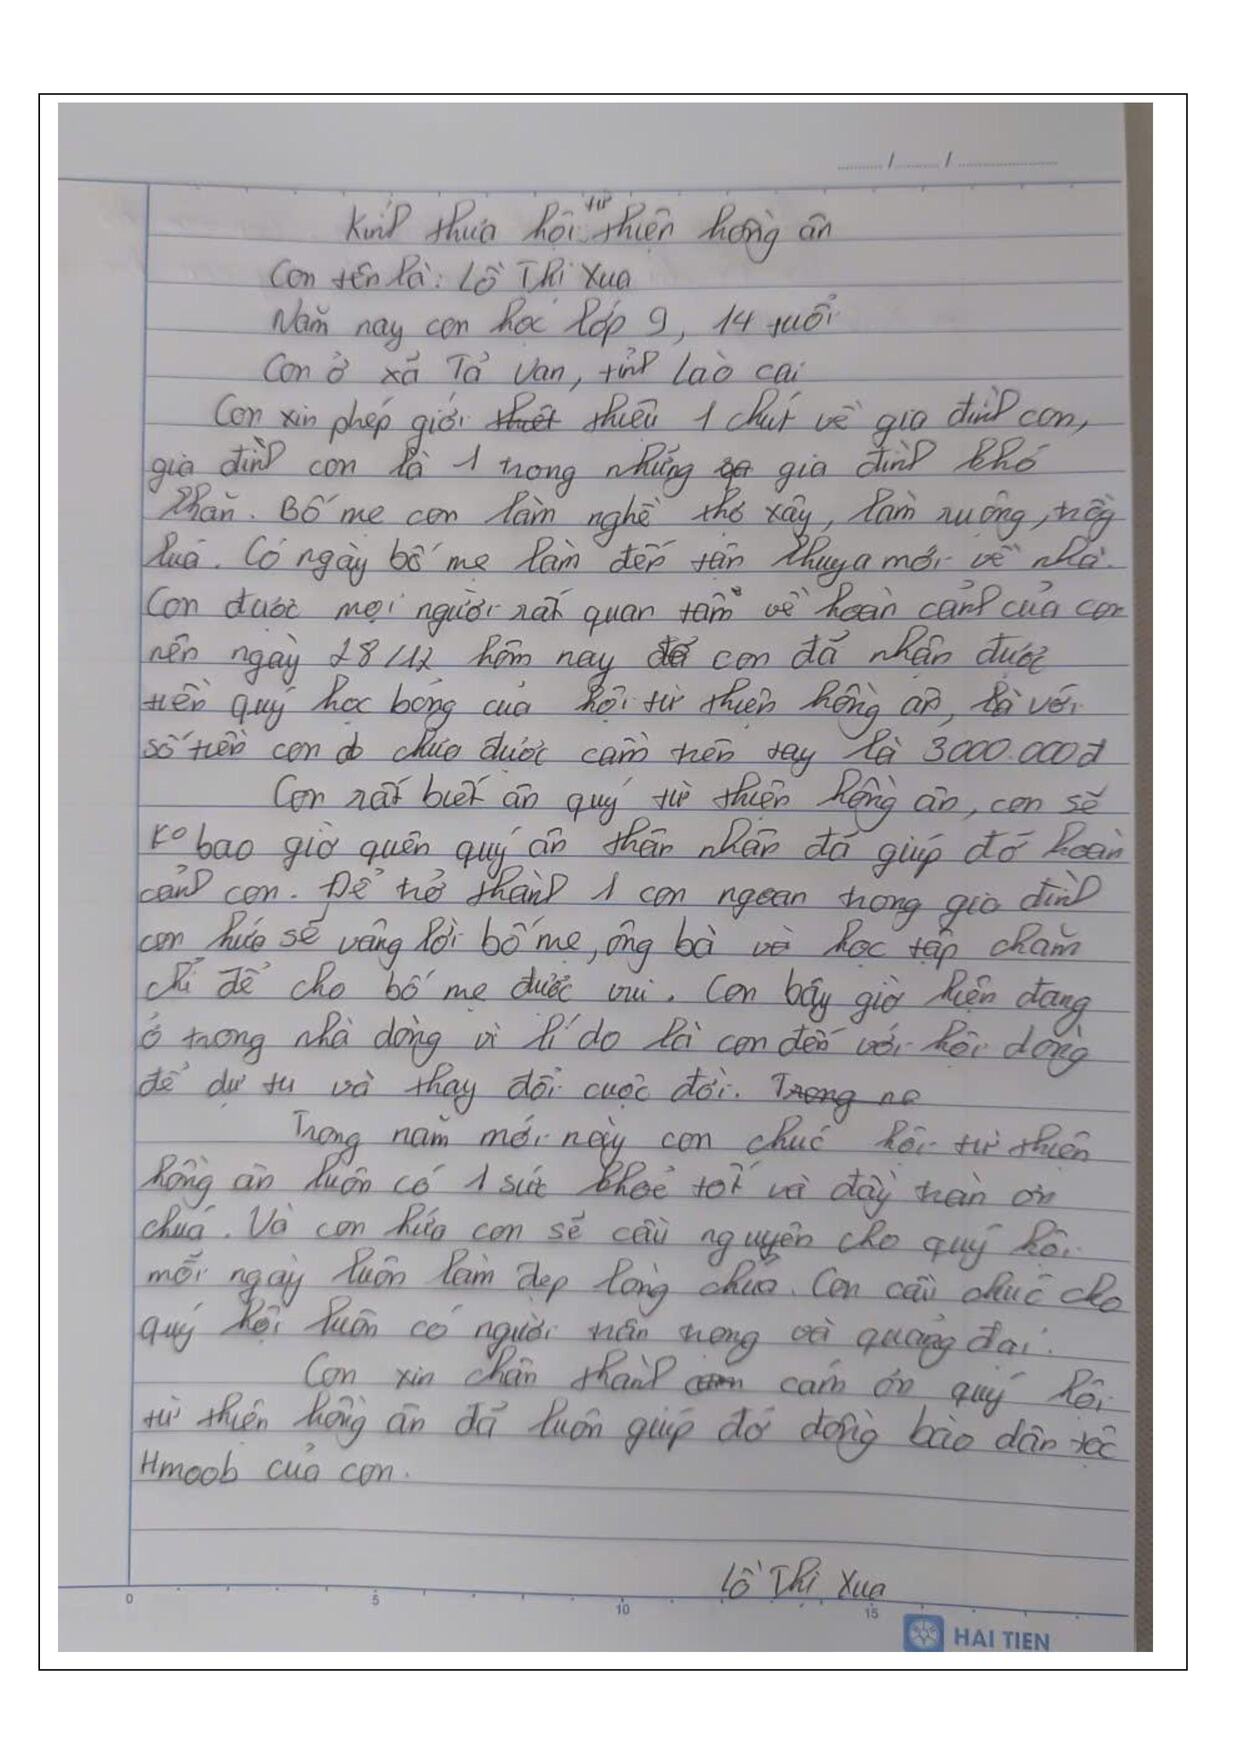 ....../....../............
Kính thưa hội từ thiện hồng ân
Con tên là: Lồ Thị Xua
Năm nay con học lớp 9, 14 tuổi
Con ở xã Tả Van, tỉnh Lào cai
Con xin phép giới thiết thiêu 1 chút về gia đình con,
gia đình con là 1 trong những ga gia đình khó
khăn. Bố mẹ con làm nghề thợ xây, làm ruộng, trồng
luá. Có ngày bố mẹ làm đến tận khuya mới về nhà.
Con được mọi người rất quan tâm về hoàn cảnh của con
nên ngày 28/12 hôm nay để con đã nhận được
tiền quý học bổng của hội từ thiện hồng ân, là với
số tiền con chưa được cầm trên tay là 3000.000đ
Con rất biết ân quý từ thiện hồng ân, con sẽ
Ko bao giờ quên quý ân thân nhân đã giúp đỡ hoàn
cảnh con. Để trở thành 1 con ngoan trong gia đình
con hứa sẽ vâng lời bố mẹ, ông bà và học tập chăm
chỉ để cho bố mẹ được vui. Con bây giờ hiện đang
ở trong nhà dòng vì lí do là con đến với hội dòng
để dự tu và thay đổi cuộc đời. Trong na
Trong năm mới này con chúc hội từ thiện
hồng ân luôn có 1 sức khoẻ tốt và đầy tràn ơn
chuá. Và con hứa con sẽ cầu nguyện cho quý hội
mỗi ngày luôn làm đẹp lòng chúa. Con cầu chúc cho
quý hội luôn có người trân trọng và quảng đại.
Con xin chân thành cam cám ơn quý hội
từ thiện hồng ân đã luôn giúp đỡ đồng bào dân tộc
Hmoob của con.
Lồ Thị Xua
0 5 10 15
HAI TIEN